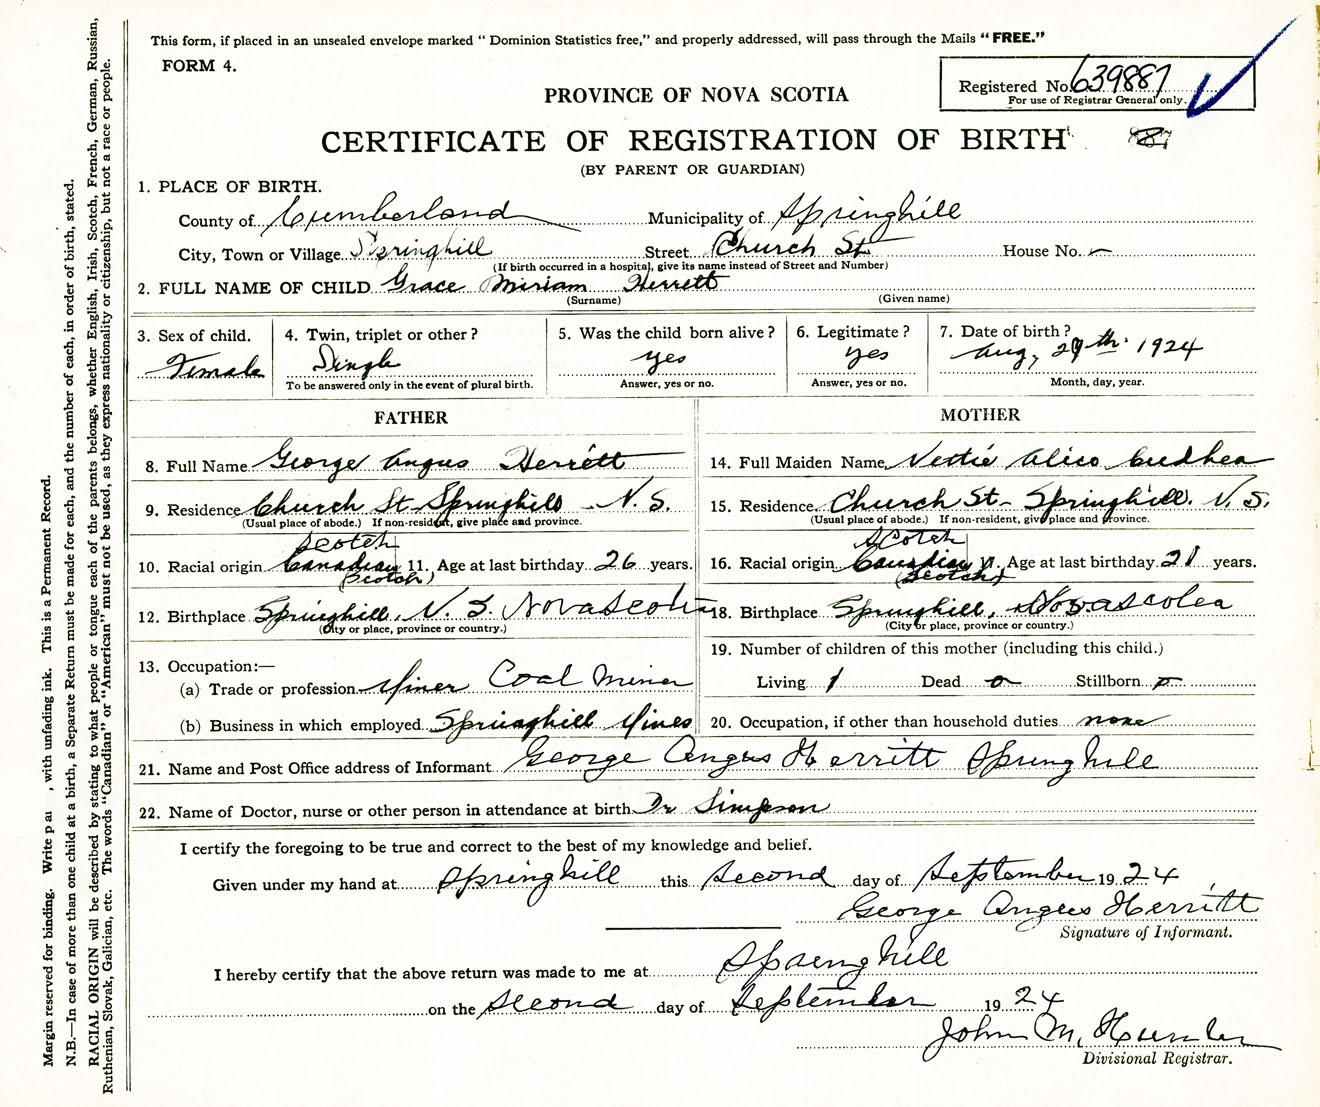 This form, if placed in an unsealed envelope marked "Dominion Statistics free," and properly addressed, will pass through the Mails "FREE."
FORM 4.
Registered No. 639887
For use of Registrar General only.
PROVINCE OF NOVA SCOTIA
CERTIFICATE OF REGISTRATION OF BIRTH
(BY PARENT OR GUARDIAN)
1. PLACE OF BIRTH.
County of Cumberland Municipality of Springhill
City, Town or Village Springhill Street Church St House No. —
(If birth occurred in a hospital, give its name instead of Street and Number)
2. FULL NAME OF CHILD Grace Miriam Herrett
(Surname) (Given name)
3. Sex of child. 4. Twin, triplet or other? 5. Was the child born alive? 6. Legitimate? 7. Date of birth?
Female Single yes yes Aug, 29th. 1924
To be answered only in the event of plural birth. Answer, yes or no. Answer, yes or no. Month, day, year.
FATHER MOTHER
8. Full Name George Angus Herrett 14. Full Maiden Name Nettie Alice
9. Residence Church St Springhill - N. S. 15. Residence Church St - Springhill. N. S.
(Usual place of abode.) If non-resident, give place and province. (Usual place of abode.) If non-resident, give place and province.
Scotch Scotch
10. Racial origin Canadian 11. Age at last birthday 26 years. 16. Racial origin Canadian 17. Age at last birthday 21 years.
(Scotch) (Scotch)
12. Birthplace Springhill, N. S. Nova Scotia 18. Birthplace Springhill, Nova Scotea
(City or place, province or country.) (City or place, province or country.)
13. Occupation:—
(a) Trade or profession Miner Coal Miner
(b) Business in which employed Springhill Mines
19. Number of children of this mother (including this child.)
Living 1 Dead 0 Stillborn 0
20. Occupation, if other than household duties none
21. Name and Post Office address of Informant George Angus Herritt Springhill
22. Name of Doctor, nurse or other person in attendance at birth Dr Simpson
I certify the foregoing to be true and correct to the best of my knowledge and belief.
Given under my hand at Springhill this second day of September 1924
George Angus Herritt
Signature of Informant.
I hereby certify that the above return was made to me at Springhill
on the second day of September 1924
John M. Hunter
Divisional Registrar.
Margin reserved for binding. Write , with unfading ink. This is a Permanent Record.
N.B.—In case of more than one child at a birth, a Separate Return must be made for each, and the number of each, in order of birth, stated.
RACIAL ORIGIN will be described by stating to what people or tongue each of the parents belongs, whether English, Irish, Scotch, French, German, Russian,
Ruthenian, Slovak, Galician, etc. The words "Canadian" or "American" must not be used, as they express nationality or citizenship, but not a race or people.